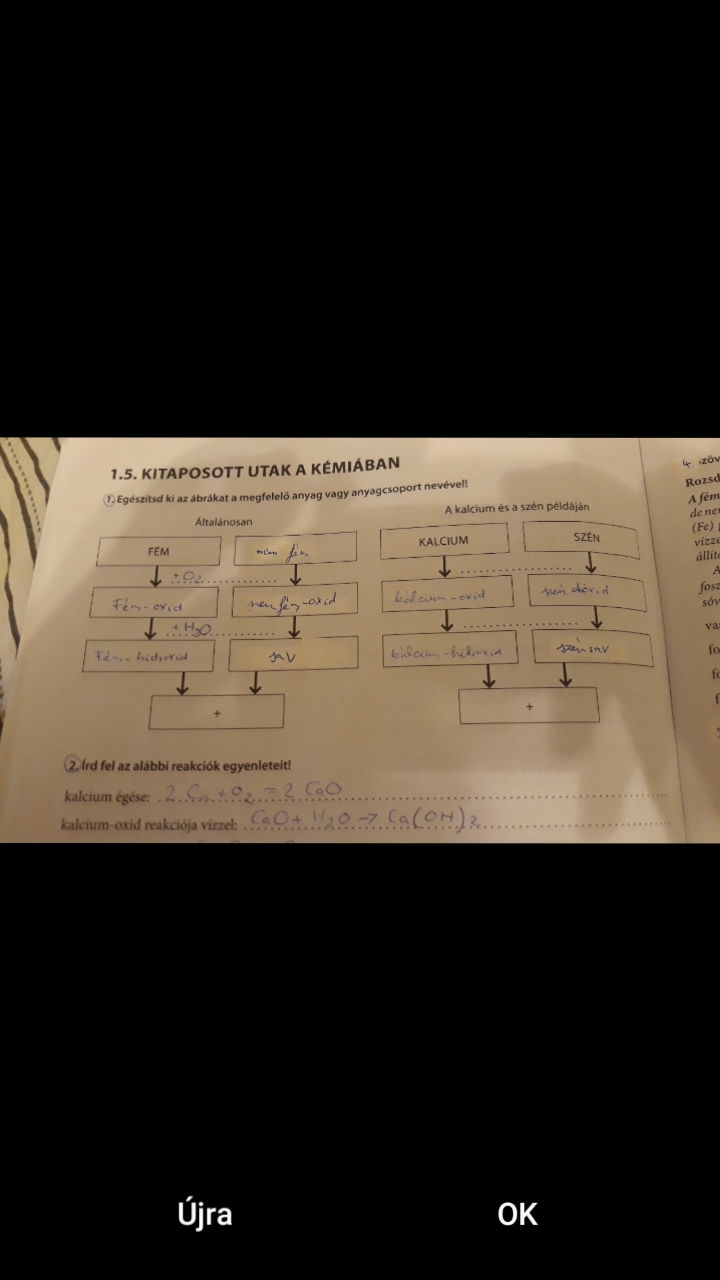 1.5. KITAPOSOTT UTAK A KÉMIÁBAN
1. Egészítsd ki az ábrákat a megfelelő anyag vagy anyagcsoport nevével!
Általánosan
FÉM
nem fém
+O₂
Fém-oxid
nemfém-oxid
+H₂O
Fém-hidroxid
sav
+
A kalcium és a szén példáján
KALCIUM
SZÉN
kálcium-oxid
szén dioxid
kálcium-hidroxid
szénsav
+
2. Írd fel az alábbi reakciók egyenleteit!
kalcium égése: 2 Ca + O₂ = 2 CaO
kalcium-oxid reakciója vízzel: CaO + H₂O → Ca(OH)₂
4.
Rozsd
A fém
de ne
(Fe)
vízze
állít
A
fosz
sóv
va
fo
Újra
OK